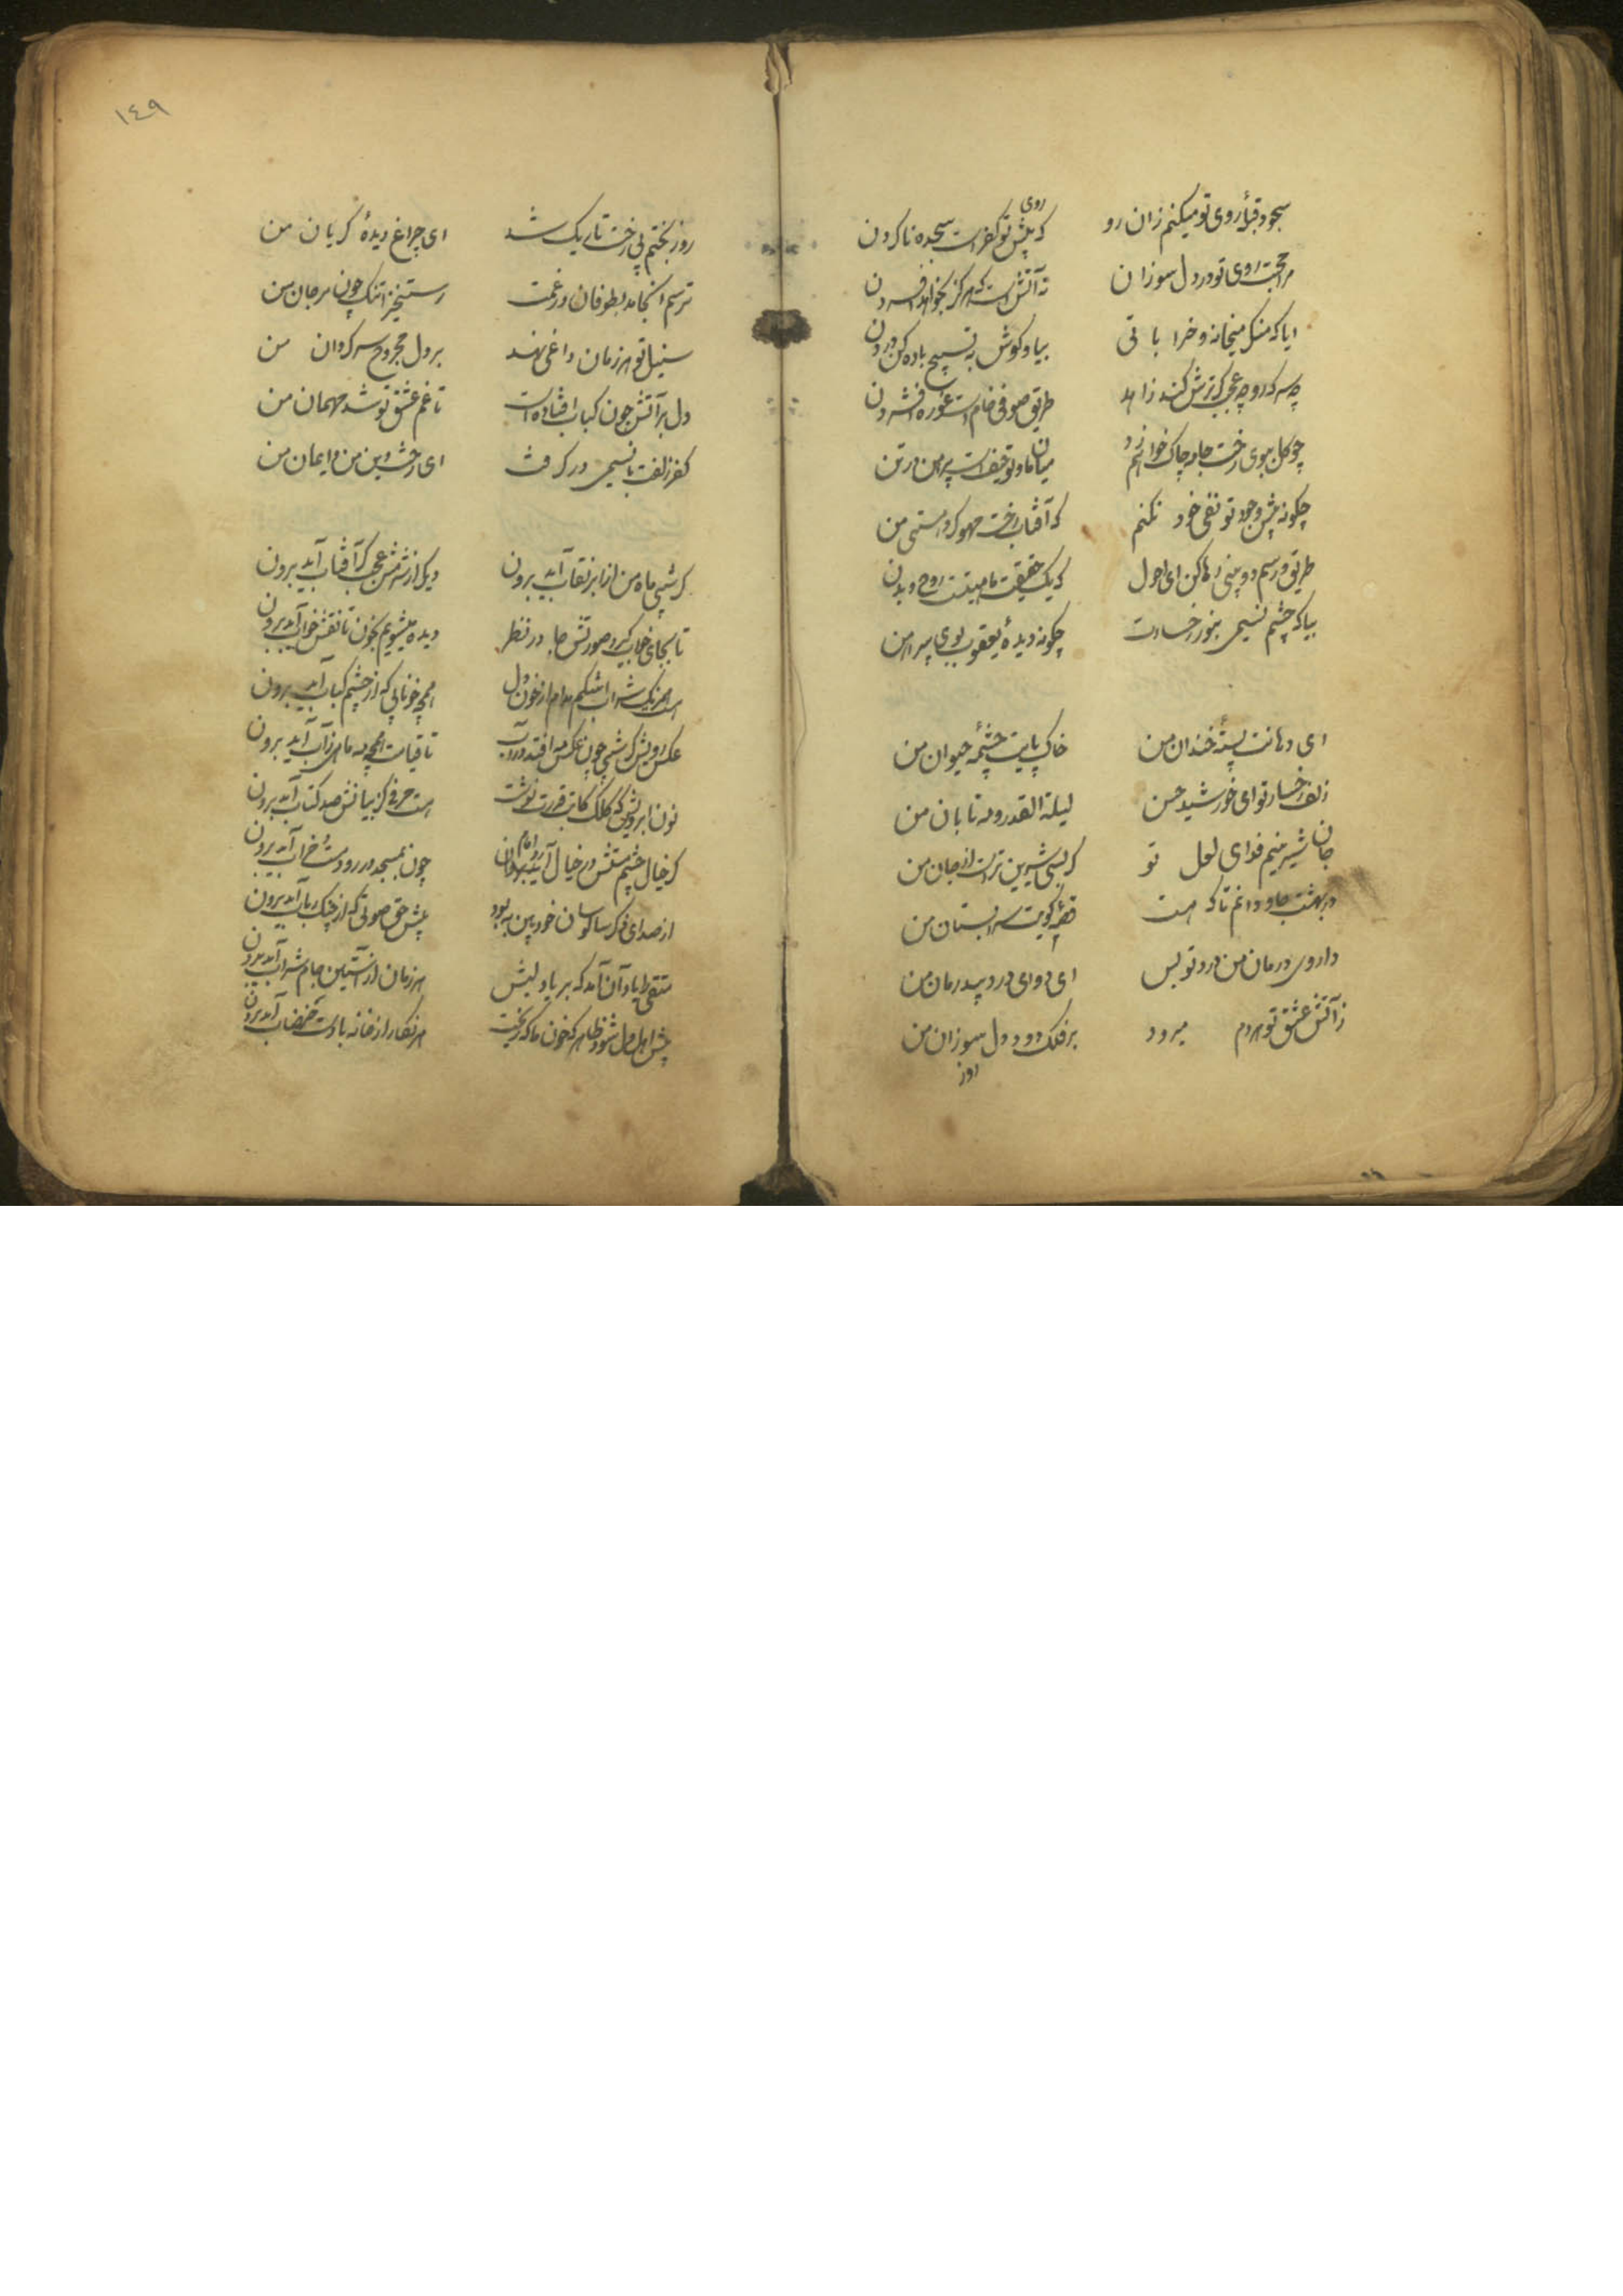 سجود قبلهٔ روی تو میکنم زان رو
که پیش روی تو کفرست سجده ناکردن
مرا محبت روی تو در دل سوزان
نه آتش است که هرگز بخواهد افسردن
ایا که منکر میخانه و خراباتی
بیا و کوش به تسبیح باده کن دردن
چه سرکه رو چه عجب گر ترش کند زاهد
طریق صوفی خام است غوره افشردن
چو گل ببوی رخت جامه چاک خواهم زد
میان ما و تو حیف است پیرهن در تن
چگونه پیش وجود تو نفی خود نکنم
که آفتاب رخت محو کرد هستی من
طریق و رسم دو بینی رها کن ای احول
که یک حقیقت و ماهیتست روح و بدن
بیا که چشم نسیمی بنور رخسارت
چگونه دیدهٔ یعقوب و بوی پیراهن
ای دهانت پستهٔ خندان من
خاک پایت چشمهٔ حیوان من
زلف و رخسار تو ای خورشید حسن
لیلة القدر و مه تابان من
جان شیرینم فدای لعل تو
که بسی شیرین ترست از جان من
در بهشت جاودانم تا که هست
روضهٔ کویت سرابستان من
داروی درمان من درد تو بس
ای دوای درد بیدرمان من
زآتش عشق تو هر دم میرود
بر فلک دود دل سوزان من
روز
١٤٩
روز بختم بی رخت تاریک شد
ای چراغ دیدهٔ گریان من
ترسم انجامد بطوفان در غمت
رستخیز اشک چون مرجان من
سنبل تو هر زمان داغی نهد
بر دل مجروح سرگردان من
دل بر آتش چون کباب افتاده است
تا غم عشق تو شد مهمان من
کفر زلفت با نسیمی درگرفت
ای رخت دین من و ایمان من
گر شبی ماه من از ابر نقاب آید برون
دیگر از شرمش عجب گر آفتاب آید برون
تا بجای خواب گیرد صورتش جا در نظر
دیده میشویم بخون تا نقش خواب آید برون
هست همرنگ شراب اشکم مدام از خون دل
همچو خونابی که از چشم کباب آید برون
عکس رویش گر شبی چون عکس مه افتد در آب
تا قیامت همچو مه ماهی ز آب آید برون
نون ابرویش که کلک کاتب قدرت نوشت
هست حرفی کز بیانش صد کتاب آید برون
گر خیال چشم مستش در خیال آید مدام
چون بمسجد در رود مست خراب آید برون
از صدای ذکر سالوسان خودبین به بود
پیش حق صوتی که از چنگ و رباب آید برون
متقی را باد آن آمد که بر یاد لبش
هر زمان از آستین جام شراب آید برون
پیش اهل دل شود ظاهر که خون ما که ریخت
هر نگار از خانه با دست خضاب آید برون